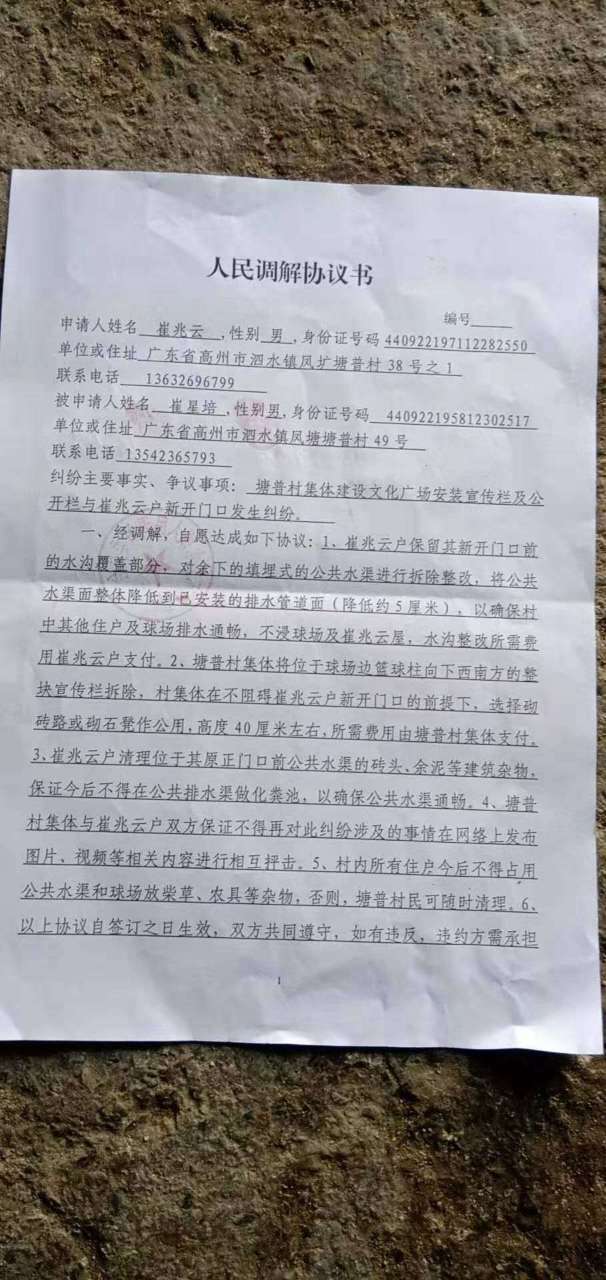 人民调解协议书
编号
申请人姓名 崔兆云 ,性别 男 ,身份证号码 440922197112282550
单位或住址 广东省高州市泗水镇凤圹塘普村 38 号之 1
联系电话 13632696799
被申请人姓名 崔星培 ,性别男,身份证号码 440922195812302517
单位或住址 广东省高州市泗水镇凤塘塘普村 49 号
联系电话 13542365793
纠纷主要事实、争议事项: 塘普村集体建设文化广场安装宣传栏及公
开栏与崔兆云户新开门口发生纠纷。
一、经调解，自愿达成如下协议:1、崔兆云户保留其新开门口前
的水沟覆盖部分，对余下的填埋式的公共水渠进行拆除整改，将公共
水渠面整体降低到已安装的排水管道面（降低约 5 厘米），以确保村
中其他住户及球场排水通畅，不浸球场及崔兆云屋，水沟整改所需费
用崔兆云户支付。2、塘普村集体将位于球场边篮球柱向下西南方的整
块宣传栏拆除，村集体在不阻碍崔兆云户新开门口的前提下，选择砌
砖路或砌石凳作公用,高度 40 厘米左右,所需费用由塘普村集体支付。
3、崔兆云户清理位于其原正门口前公共水渠的砖头、余泥等建筑杂物,
保证今后不得在公共排水渠做化粪池，以确保公共水渠通畅。4、塘普
村集体与崔兆云户双方保证不得再对此纠纷涉及的事情在网络上发布
图片、视频等相关内容进行相互抨击。5、村内所有住户今后不得占用
公共水渠和球场放柴草、农具等杂物，否则，塘普村民可随时清理。6、
以上协议自签订之日生效，双方共同遵守，如有违反，违约方需承担
1